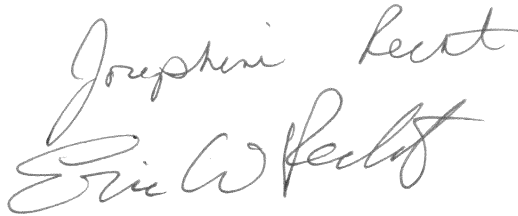 Josephine Recht
Eric W Recht